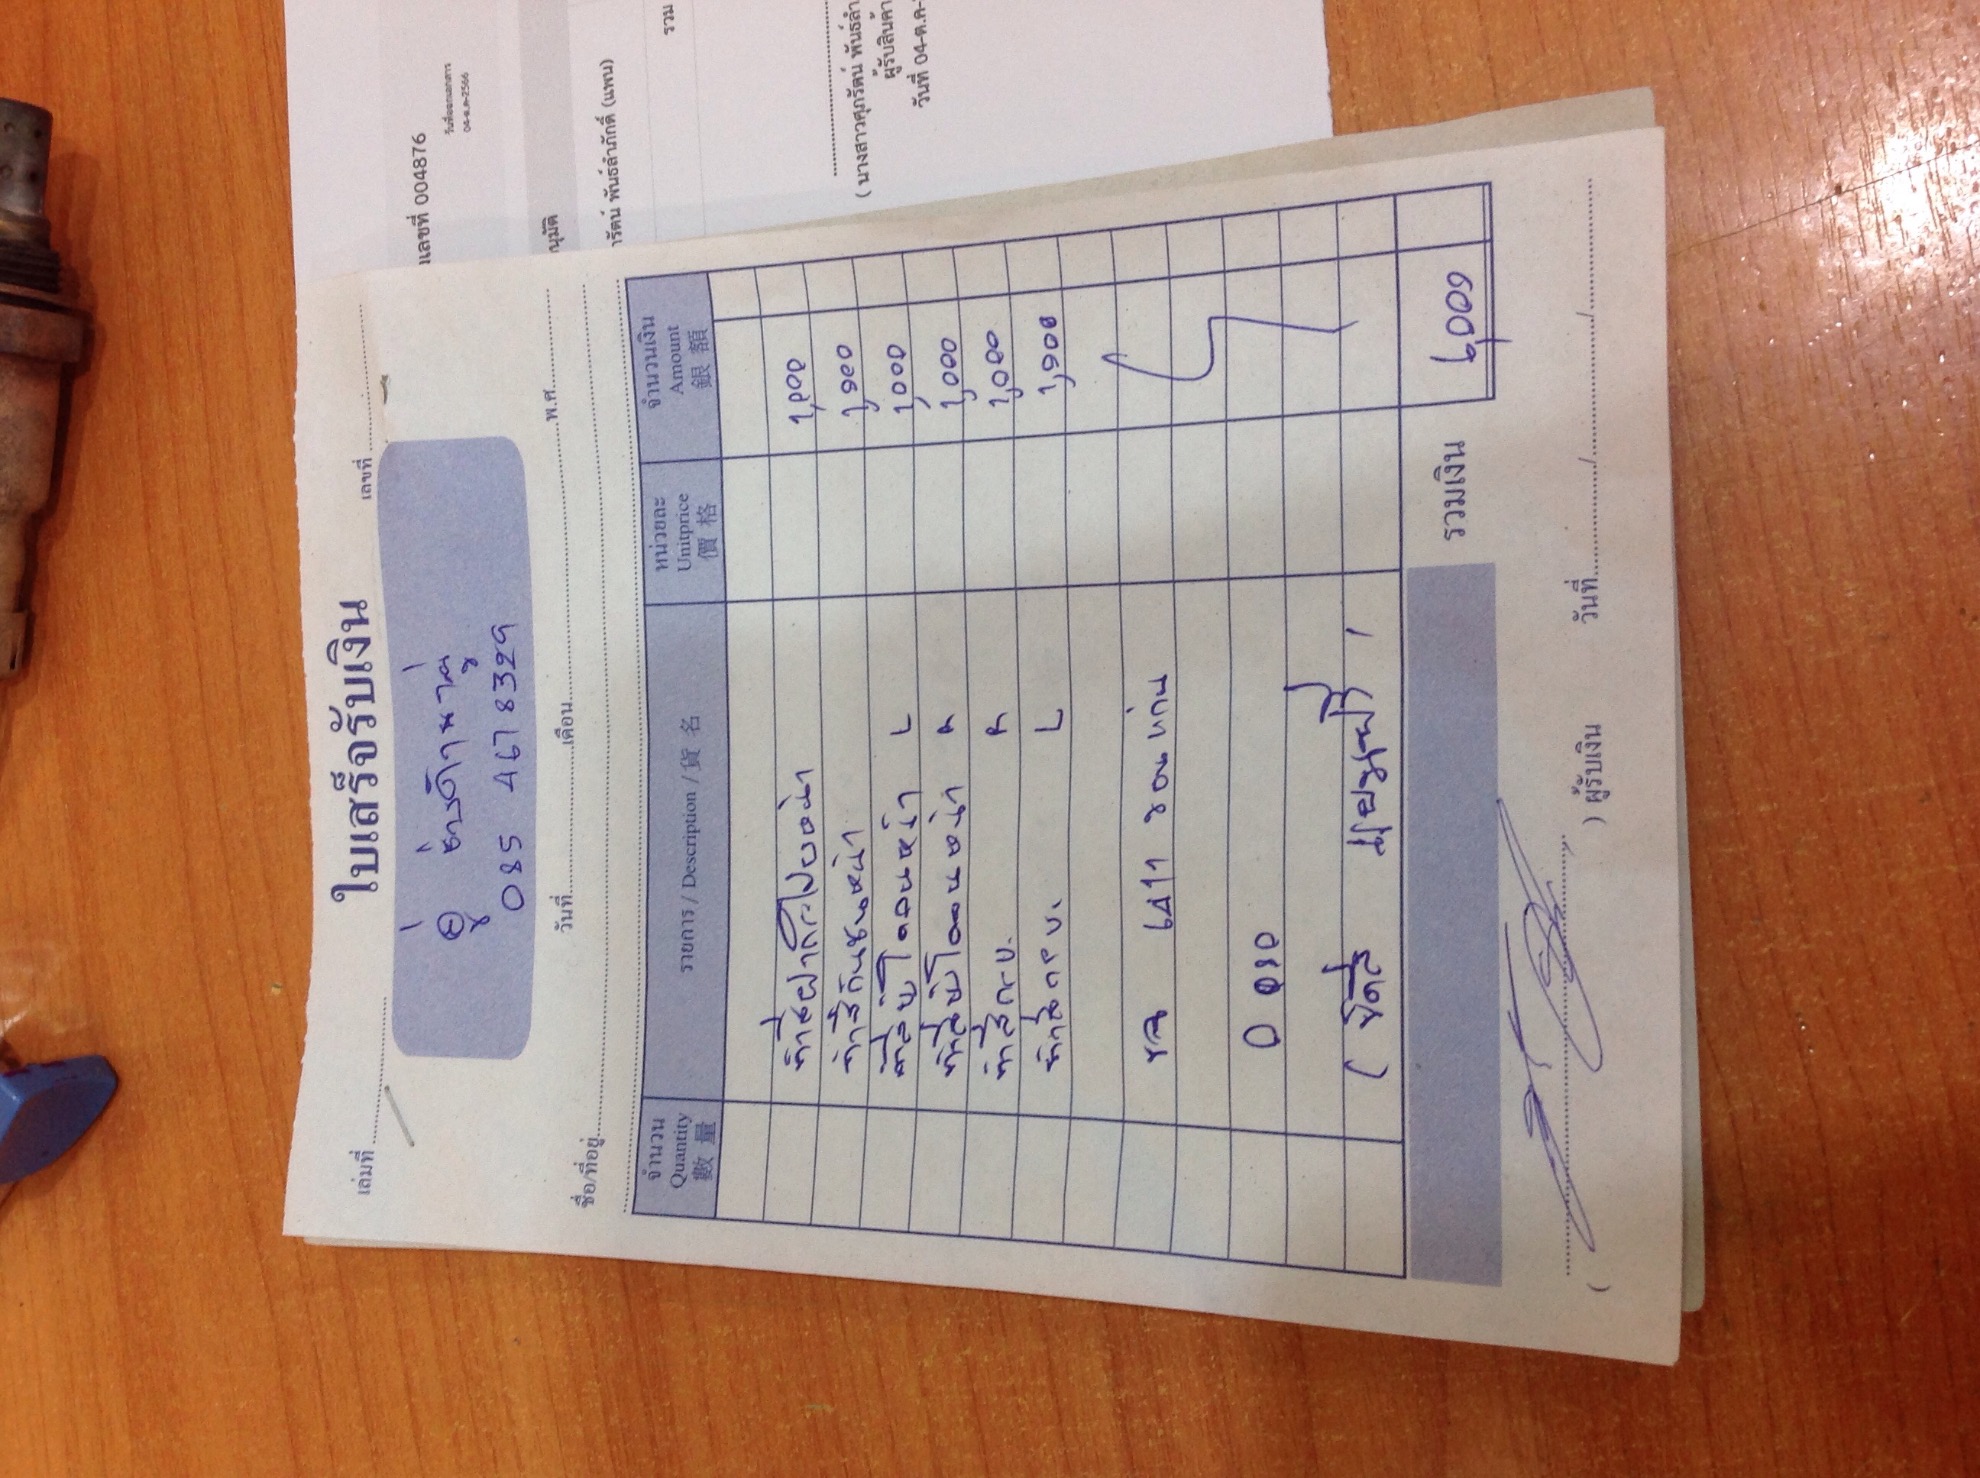 ใบเสร็จรับเงิน
เล่มที่ เลขที่
อู่ ช่างดำ
085 4678329
วันที่ เดือน พ.ศ.
ชื่อ/ที่อยู่
จำนวน รายการ / Description / 貨 名 หน่วยละ จำนวนเงิน
Quantity Unitprice Amount
數 量 價 格 銀 額
ทำสีฝากระโปงหน้า 1,000
ทำสีกันชนหน้า 1,000
ทำสีบังโคลนหน้า L 1,000
ทำสีบังโคลนหน้า R 1,000
ทำสีกะบ. R 1,000
ทำสีกะบ. L 1,000
รถ ขอนแก่น
รวมเงิน 6,000
( ) ผู้รับเงิน วันที่ / /
เลขที่ 004876
วันที่ออกเอกสาร
04-ต.ค-2566
นุมัติ
ารัตน์ พันธ์ลำภักดิ์ (แพน)
รวม
( นางสาวศุภรัตน์ พันธ์ลำ
ผู้รับสินค้า
วันที่ 04-ต.ค-